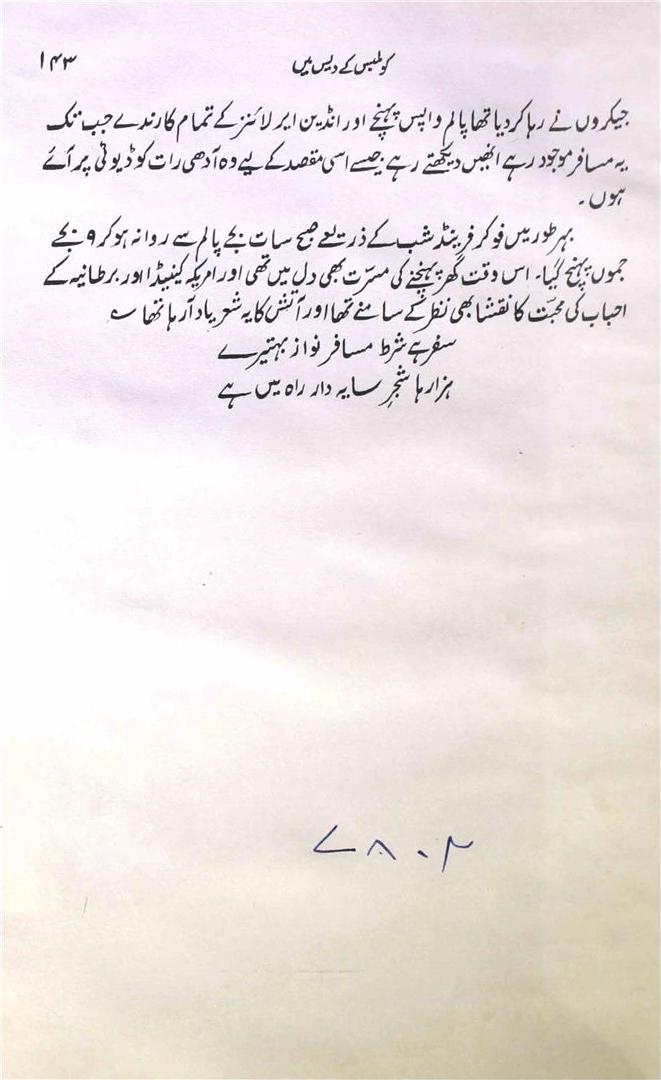 کولمبس کے دیس میں ۱۴۳
جیکروں نے رہا کر دیا تھا پالم واپس پہنچے اور انڈین ایر لائنز کے تمام کارندے جب تک
یہ مسافر موجود رہے انھیں دیکھتے رہے جیسے اسی مقصد کے لیے وہ آدھی رات کو ڈیوٹی پر آئے
ہوں۔
بہر طور میں فوکر فرینڈ شب کے ذریعے صبح سات بجے پالم سے روانہ ہو کر ۹ بجے
جموں پہنچ گیا۔ اس وقت گھر پہنچنے کی مسرّت بھی دل میں تھی اور امریکہ کینیڈا اور برطانیہ کے
احباب کی محبّت کا نقشا بھی نظر کے سامنے تھا اور آتش کا یہ شعر یاد آ رہا تھا ؎
سفر ہے شرط مسافر نواز بہتیرے
ہزار ہا شجرِ سایہ دار راہ میں ہے
۷۸۰۴